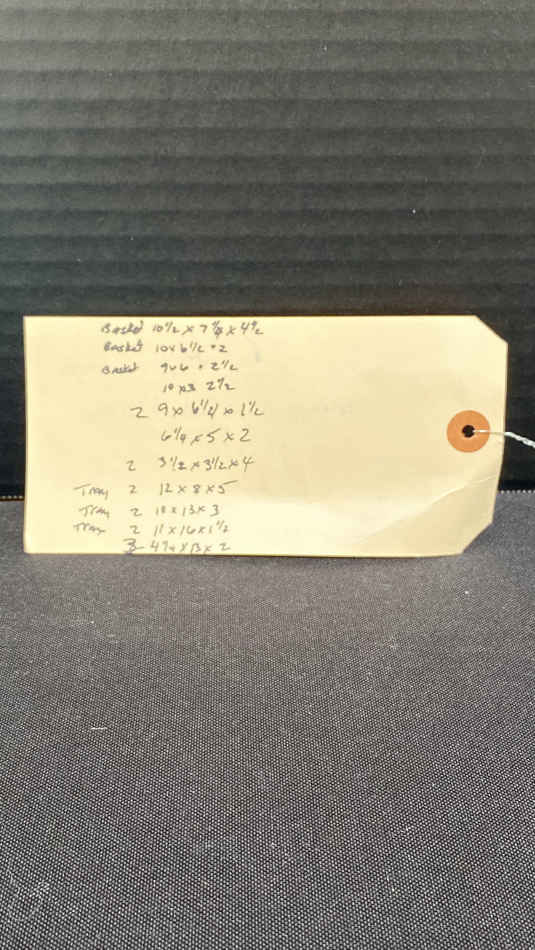 Basket 10 1/2 x 7 1/4 x 4 1/2
Basket 10 x 6 1/2 x 2
Basket 9 x 6 x 2 1/2
10 x 3 2 1/2
2 9 x 6 1/2 x 1 1/2
6 1/4 x 5 x 2
2 3 1/2 x 3 1/2 x 4
Tray 2 12 x 8 x 5
Tray 2 10 x 13 x 3
Tray 2 11 x 16 x 1 1/2
3 x 13 x 2